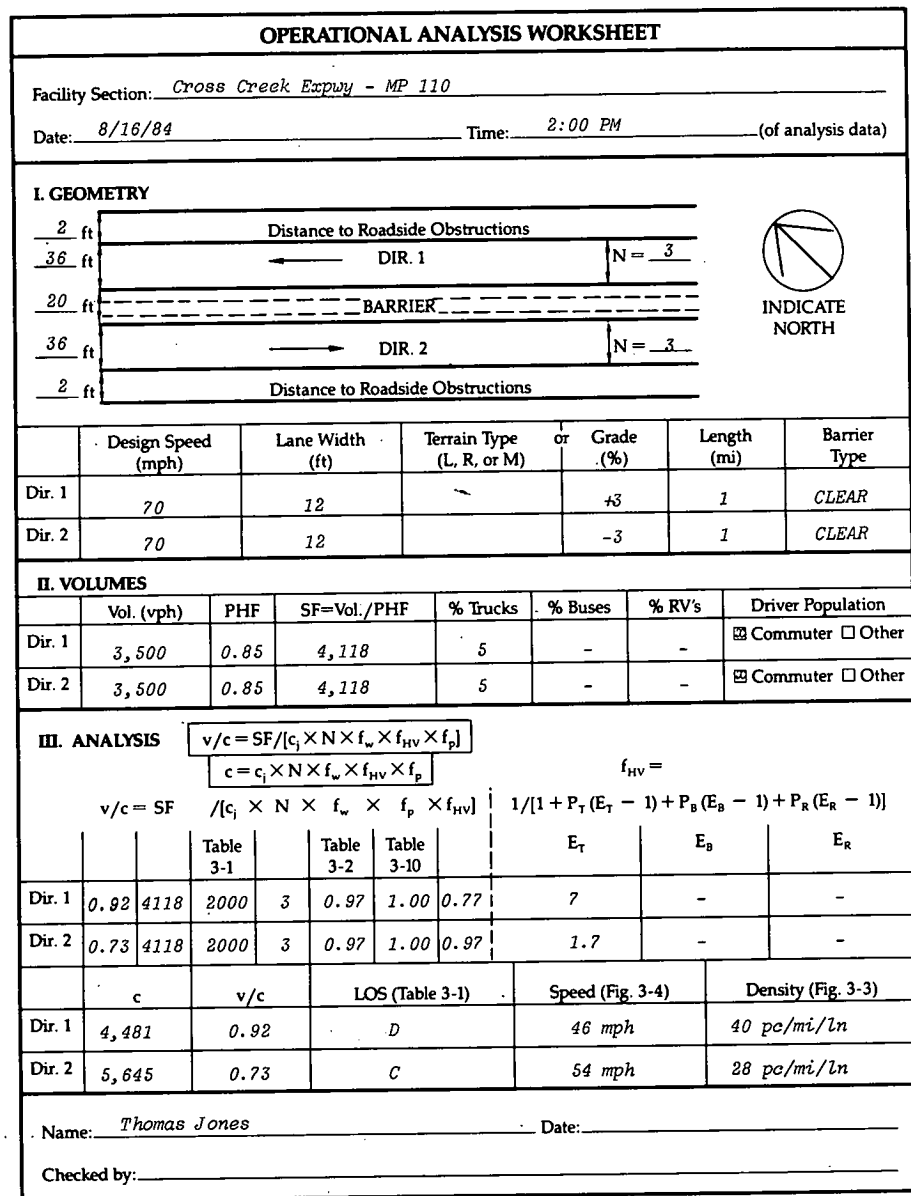 OPERATIONAL ANALYSIS WORKSHEET
Facility Section: Cross Creek Expwy - MP 110
Date: 8/16/84 Time: 2:00 PM (of analysis data)
I. GEOMETRY
2 ft Distance to Roadside Obstructions
36 ft DIR. 1 N = 3
20 ft BARRIER
INDICATE NORTH
36 ft DIR. 2 N = 3
2 ft Distance to Roadside Obstructions
Design Speed (mph) Lane Width (ft) Terrain Type (L, R, or M) or Grade (%) Length (mi) Barrier Type
Dir. 1 70 12 +3 1 CLEAR
Dir. 2 70 12 -3 1 CLEAR
II. VOLUMES
Vol. (vph) PHF SF=Vol./PHF % Trucks % Buses % RV's Driver Population
Dir. 1 3,500 0.85 4,118 5 - - ☒ Commuter ☐ Other
Dir. 2 3,500 0.85 4,118 5 - - ☒ Commuter ☐ Other
III. ANALYSIS v/c = SF/[cj × N × fw × fHV × fp]
c = cj × N × fw × fHV × fp
fHV =
v/c = SF /[cj × N × fw × fp × fHV] 1/[1 + PT(ET − 1) + PB(EB − 1) + PR(ER − 1)]
Table 3-1 Table 3-2 Table 3-10 ET EB ER
Dir. 1 0.92 4118 2000 3 0.97 1.00 0.77 7 - -
Dir. 2 0.73 4118 2000 3 0.97 1.00 0.97 1.7 - -
c v/c LOS (Table 3-1) Speed (Fig. 3-4) Density (Fig. 3-3)
Dir. 1 4,481 0.92 D 46 mph 40 pc/mi/ln
Dir. 2 5,645 0.73 C 54 mph 28 pc/mi/ln
Name: Thomas Jones Date:
Checked by: